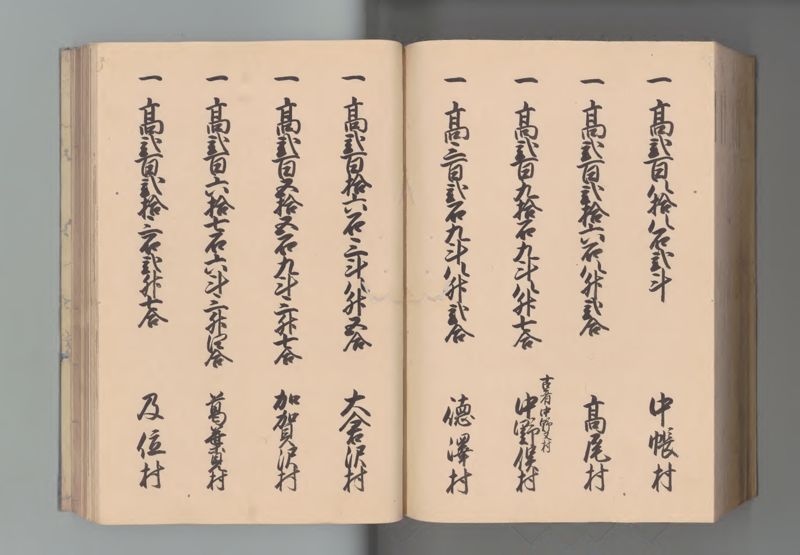 一 高弐百八拾八石弐斗 中帳村
一 高弐百弐拾六石八升弐合 高尾村
一 高弐百九拾石九斗八升七合 古者中野又村 中野俣村
一 高三百弐石九斗八升弐合 德澤村
一 高弐百拾六石三斗八升五合 大倉沢村
一 高弐百五拾五石九斗三升七合 加賀沢村
一 高弐百六拾七石六斗三升四合 葛葉村
一 高弐百弐拾三石弐升七合 及位村